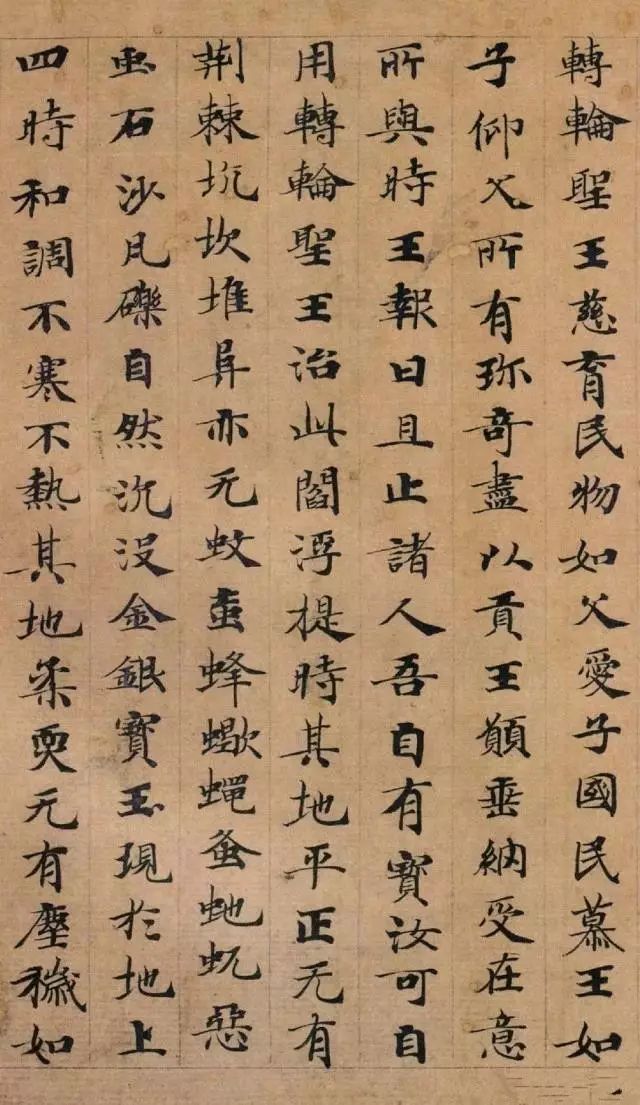 轉輪聖王慈育民物如父愛子國民慕王如
子仰父所有珎奇盡以貢王願垂納受在意
所與時王報曰且止諸人吾自有寶汝可自
用轉輪聖王治此閻浮提時其地平正无有
荆棘坑坎堆阜亦无蚊䖟蜂蠍蠅蚤虵虺惡
虫石沙凡礫自然沉没金銀寶玉現於地上
四時和調不寒不熱其地柔耎无有塵穢如